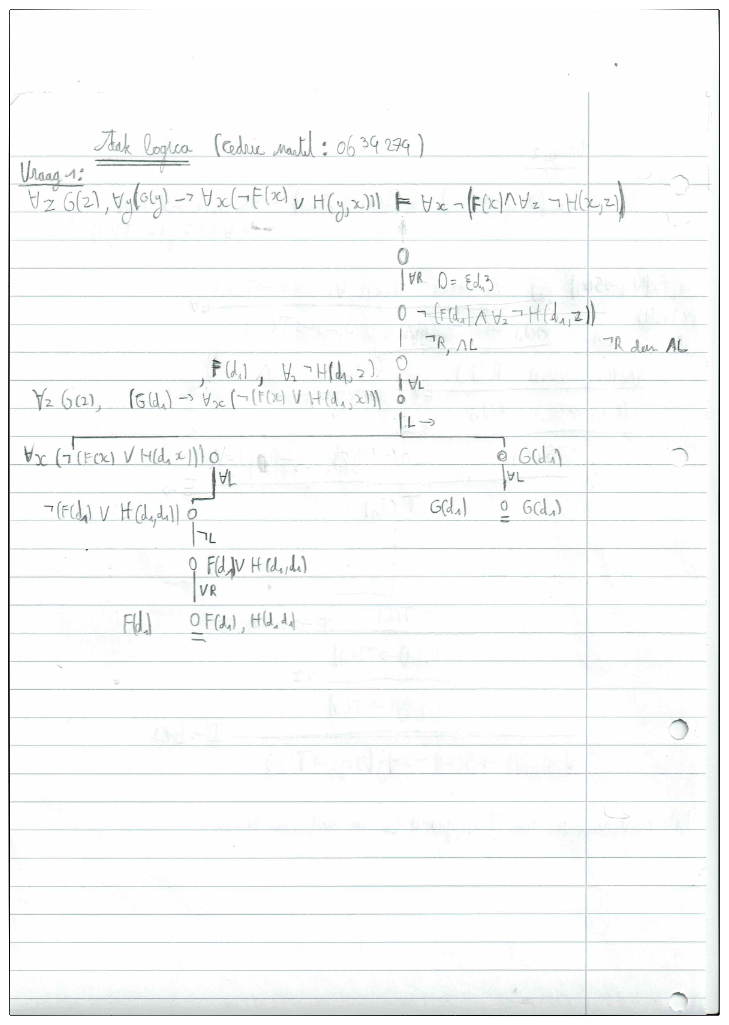 Taak logica (Cedric Martel: 0639279)
Vraag 1:
∀z G(z), ∀y(G(y) → ∀x(¬F(x) ∨ H(y,x))) ⊨ ∀x ¬(F(x) ∧ ∀z ¬H(x,z))
O
∀R D = {d₁}
O ¬(F(d₁) ∧ ∀z ¬H(d₁,z))
¬R, ∧L ¬R dan ∧L
, F(d₁), ∀z ¬H(d₁,z) O
∀L
∀z G(z), (G(d₁) → ∀x(¬(F(x) ∨ H(d₁,x))) O
L→
∀x (¬(F(x) ∨ H(d₁x))) O O G(d₁)
∀L ∀L
¬(F(d₁) ∨ H(d₁,d₁)) O G(d₁) O G(d₁)
¬L
O F(d₁) ∨ H(d₁,d₁)
∨R
F(d₁) O F(d₁), H(d₁d₁)